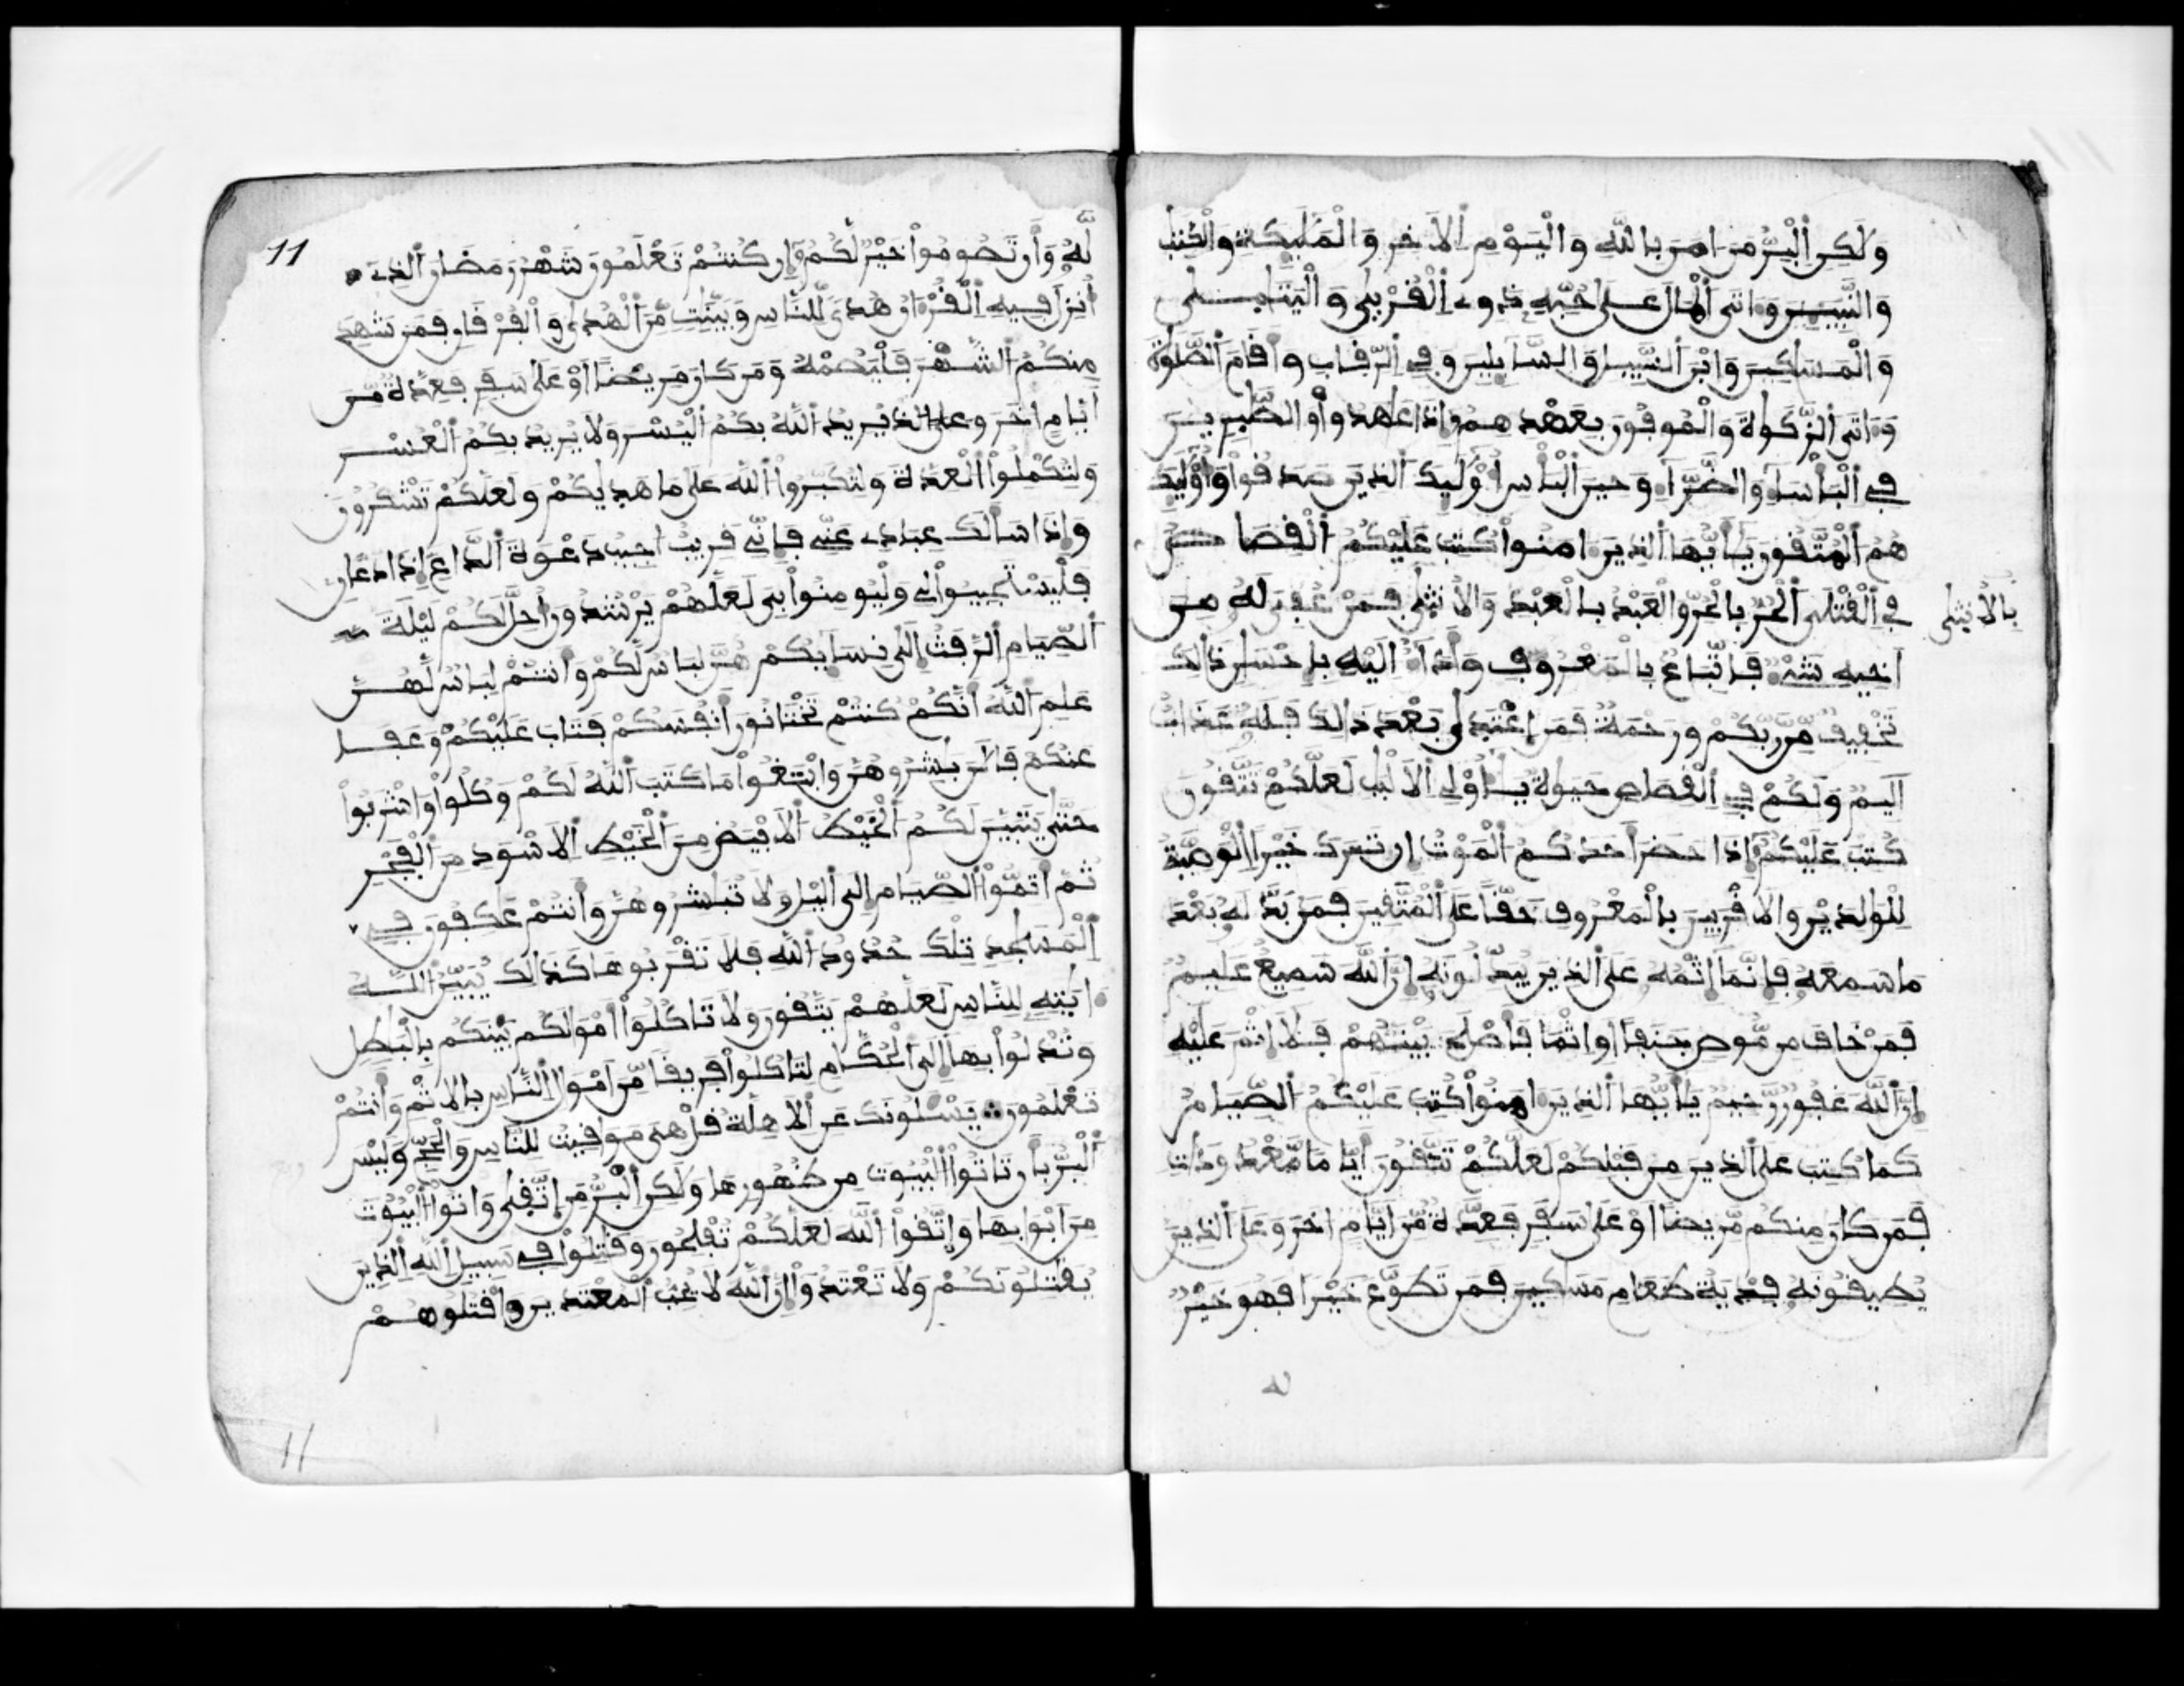 وَلَٰكِنِ اِ۬لْبِرُّ مَنَ اٰمَنَ بِاللَّهِ وَالْيَوْمِ اِ۬لَاخِرِ وَالْمَلَٰٓئِكَةِ وَالْكِتَٰبِ
وَالنَّبِيٓـِٕنَ وَءَاتَى اَ۬لْمَالَ عَلَىٰ حُبِّهِ ذَوِے اِ۬لْقُرْبَىٰ وَالْيَتَٰمَىٰ
وَالْمَسَٰكِينَ وَابْنَ اَ۬لسَّبِيلِ وَالسَّآئِلِينَ وَفِے اِ۬لرِّقَابِ وَأَقَامَ اَ۬لصَّلَوٰةَ
وَءَاتَى اَ۬لزَّكَوٰةَ وَالْمُوفُونَ بِعَهْدِهِمُۥٓ إِذَا عَٰهَدُواْ وَالصَّٰبِرِينَ
فِے اِ۬لْبَأْسَآءِ وَالضَّرَّآءِ وَحِينَ اَ۬لْبَأْسِ أُوْلَٰٓئِكَ اَ۬لذِينَ صَدَقُواْ وَأُوْلَٰٓئِكَ
هُمُ اُ۬لْمُتَّقُونَ يَٰٓأَيُّهَا اَ۬لذِينَ ءَامَنُواْ كُتِبَ عَلَيْكُمُ اُ۬لْقِصَاصُ
فِے اِ۬لْقَتْلَى اَ۬لْحُرُّ بِالْحُرِّ وَالْعَبْدُ بِالْعَبْدِ وَالُانثَىٰ فَمَنْ عُفِيَ لَهُۥ مِنَ
بِالُانثَىٰ
اَخِيهِ شَےْءٞ فَاتِّبَاعُۢ بِالْمَعْرُوفِ وَأَدَآءٌ اِلَيْهِ بِإِحْسَٰنٖ ذَٰلِكَ
تَخْفِيفٞ مِّن رَّبِّكُمْ وَرَحْمَةٞ فَمَنِ اِ۪عْتَدَىٰ بَعْدَ ذَٰلِكَ فَلَهُۥ عَذَابٌ
اَلِيمٞ وَلَكُمْ فِے اِ۬لْقِصَاصِ حَيَوٰةٞ يَٰٓأُوْلِے اِ۬لَالْبَٰبِ لَعَلَّكُمْ تَتَّقُونَ
كُتِبَ عَلَيْكُمُۥٓ إِذَا حَضَرَ أَحَدَكُمُ اُ۬لْمَوْتُ إِن تَرَكَ خَيْراً اِ۬لْوَصِيَّةُ
لِلْوَٰلِدَيْنِ وَالَاقْرَبِينَ بِالْمَعْرُوفِ حَقّاً عَلَى اَ۬لْمُتَّقِينَ فَمَنۢ بَدَّلَهُۥ بَعْدَ
مَا سَمِعَهُۥ فَإِنَّمَآ إِثْمُهُۥ عَلَى اَ۬لذِينَ يُبَدِّلُونَهُۥٓ إِنَّ اَ۬للَّهَ سَمِيعٌ عَلِيمٞ
فَمَنْ خَافَ مِن مُّوصٖ جَنَفاً اَوِ اِثْماٗ فَأَصْلَحَ بَيْنَهُمْ فَلَآ إِثْمَ عَلَيْهِ
إِنَّ اَ۬للَّهَ غَفُورٞ رَّحِيمٞ يَٰٓأَيُّهَا اَ۬لذِينَ ءَامَنُواْ كُتِبَ عَلَيْكُمُ اُ۬لصِّيَامُ
كَمَا كُتِبَ عَلَى اَ۬لذِينَ مِن قَبْلِكُمْ لَعَلَّكُمْ تَتَّقُونَ أَيَّاماٗ مَّعْدُودَٰتٖ
فَمَن كَانَ مِنكُم مَّرِيضاً اَوْ عَلَىٰ سَفَرٖ فَعِدَّةٞ مِّنَ اَيَّامٍ اُخَرَ وَعَلَى اَ۬لذِينَ
يُطِيقُونَهُۥ فِدْيَةُ طَعَامِ مَسَٰكِينَ فَمَن تَطَوَّعَ خَيْراٗ فَهُوَ خَيْرٞ
11
لَّهُۥ وَأَن تَصُومُواْ خَيْرٞ لَّكُمُۥٓ إِن كُنتُمْ تَعْلَمُونَ شَهْرُ رَمَضَانَ اَ۬لذِےٓ
أُنزِلَ فِيهِ اِ۬لْقُرْءَانُ هُدىٗ لِّلنَّاسِ وَبَيِّنَٰتٖ مِّنَ اَ۬لْهُدَىٰ وَالْفُرْقَانِ فَمَن شَهِدَ
مِنكُمُ اُ۬لشَّهْرَ فَلْيَصُمْهُ وَمَن كَانَ مَرِيضاً اَوْ عَلَىٰ سَفَرٖ فَعِدَّةٞ مِّنَ
اَيَّامٍ اُخَرَ يُرِيدُ اُ۬للَّهُ بِكُمُ اُ۬لْيُسْرَ وَلَا يُرِيدُ بِكُمُ اُ۬لْعُسْرَ
وَلِتُكْمِلُواْ اُ۬لْعِدَّةَ وَلِتُكَبِّرُواْ اُ۬للَّهَ عَلَىٰ مَا هَدَيٰكُمْ وَلَعَلَّكُمْ تَشْكُرُونَ
وَإِذَا سَأَلَكَ عِبَادِے عَنِّے فَإِنِّے قَرِيبٌ اُجِيبُ دَعْوَةَ اَ۬لدَّاعِۦٓ إِذَا دَعَانِۦ
فَلْيَسْتَجِيبُواْ لِے وَلْيُومِنُواْ بِے لَعَلَّهُمْ يَرْشُدُونَ أُحِلَّ لَكُمْ لَيْلَةَ
اَ۬لصِّيَامِ اِ۬لرَّفَثُ إِلَىٰ نِسَآئِكُمْ هُنَّ لِبَاسٞ لَّكُمْ وَأَنتُمْ لِبَاسٞ لَّهُنَّ
عَلِمَ اَ۬للَّهُ أَنَّكُمْ كُنتُمْ تَخْتَانُونَ أَنفُسَكُمْ فَتَابَ عَلَيْكُمْ وَعَفَا
عَنكُمْ فَالَٰنَ بَٰشِرُوهُنَّ وَابْتَغُواْ مَا كَتَبَ اَ۬للَّهُ لَكُمْ وَكُلُواْ وَاشْرَبُواْ
حَتَّىٰ يَتَبَيَّنَ لَكُمُ اُ۬لْخَيْطُ اُ۬لَابْيَضُ مِنَ اَ۬لْخَيْطِ اِ۬لَاسْوَدِ مِنَ اَ۬لْفَجْرِ
ثُمَّ أَتِمُّواْ اُ۬لصِّيَامَ إِلَى اَ۬ليْلِ وَلَا تُبَٰشِرُوهُنَّ وَأَنتُمْ عَٰكِفُونَ فِے
اِ۬لْمَسَٰجِدِ تِلْكَ حُدُودُ اُ۬للَّهِ فَلَا تَقْرَبُوهَا كَذَٰلِكَ يُبَيِّنُ اُ۬للَّهُ
ءَايَٰتِهِۦ لِلنَّاسِ لَعَلَّهُمْ يَتَّقُونَ وَلَا تَاكُلُوٓاْ أَمْوَٰلَكُم بَيْنَكُم بِالْبَٰطِلِ
وَتُدْلُواْ بِهَآ إِلَى اَ۬لْحُكَّامِ لِتَاكُلُواْ فَرِيقاٗ مِّنَ اَمْوَٰلِ اِ۬لنَّاسِ بِالِاثْمِ وَأَنتُمْ
تَعْلَمُونَ يَسْـَٔلُونَكَ عَنِ اِ۬لَاهِلَّةِ قُلْ هِىَ مَوَٰقِيتُ لِلنَّاسِ وَالْحَجِّ وَلَيْسَ
اَ۬لْبِرُّ بِأَن تَاتُواْ اُ۬لْبُيُوتَ مِن ظُهُورِهَا وَلَٰكِنِ اِ۬لْبِرُّ مَنِ اِ۪تَّقَىٰ وَاتُواْ اُ۬لْبُيُوتَ
مِنَ اَبْوَٰبِهَا وَاتَّقُواْ اُ۬للَّهَ لَعَلَّكُمْ تُفْلِحُونَ وَقَٰتِلُواْ فِے سَبِيلِ اِ۬للَّهِ اِ۬لذِينَ
يُقَٰتِلُونَكُمْ وَلَا تَعْتَدُوٓاْ إِنَّ اَ۬للَّهَ لَا يُحِبُّ اُ۬لْمُعْتَدِينَ وَاقْتُلُوهُمْ
11